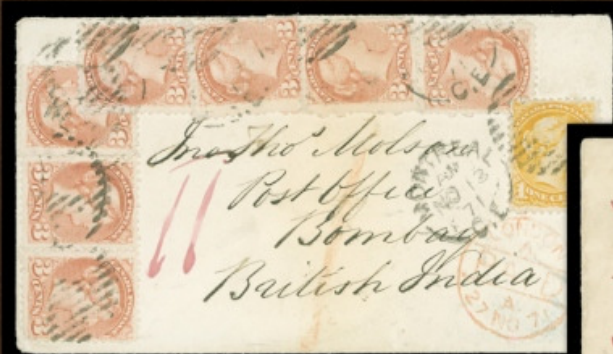 Jno Thos Molson
Post Office
Bombay
British India
11
MONTREAL
NO 13
71
C.E.
LONDON
A
27 NO 71